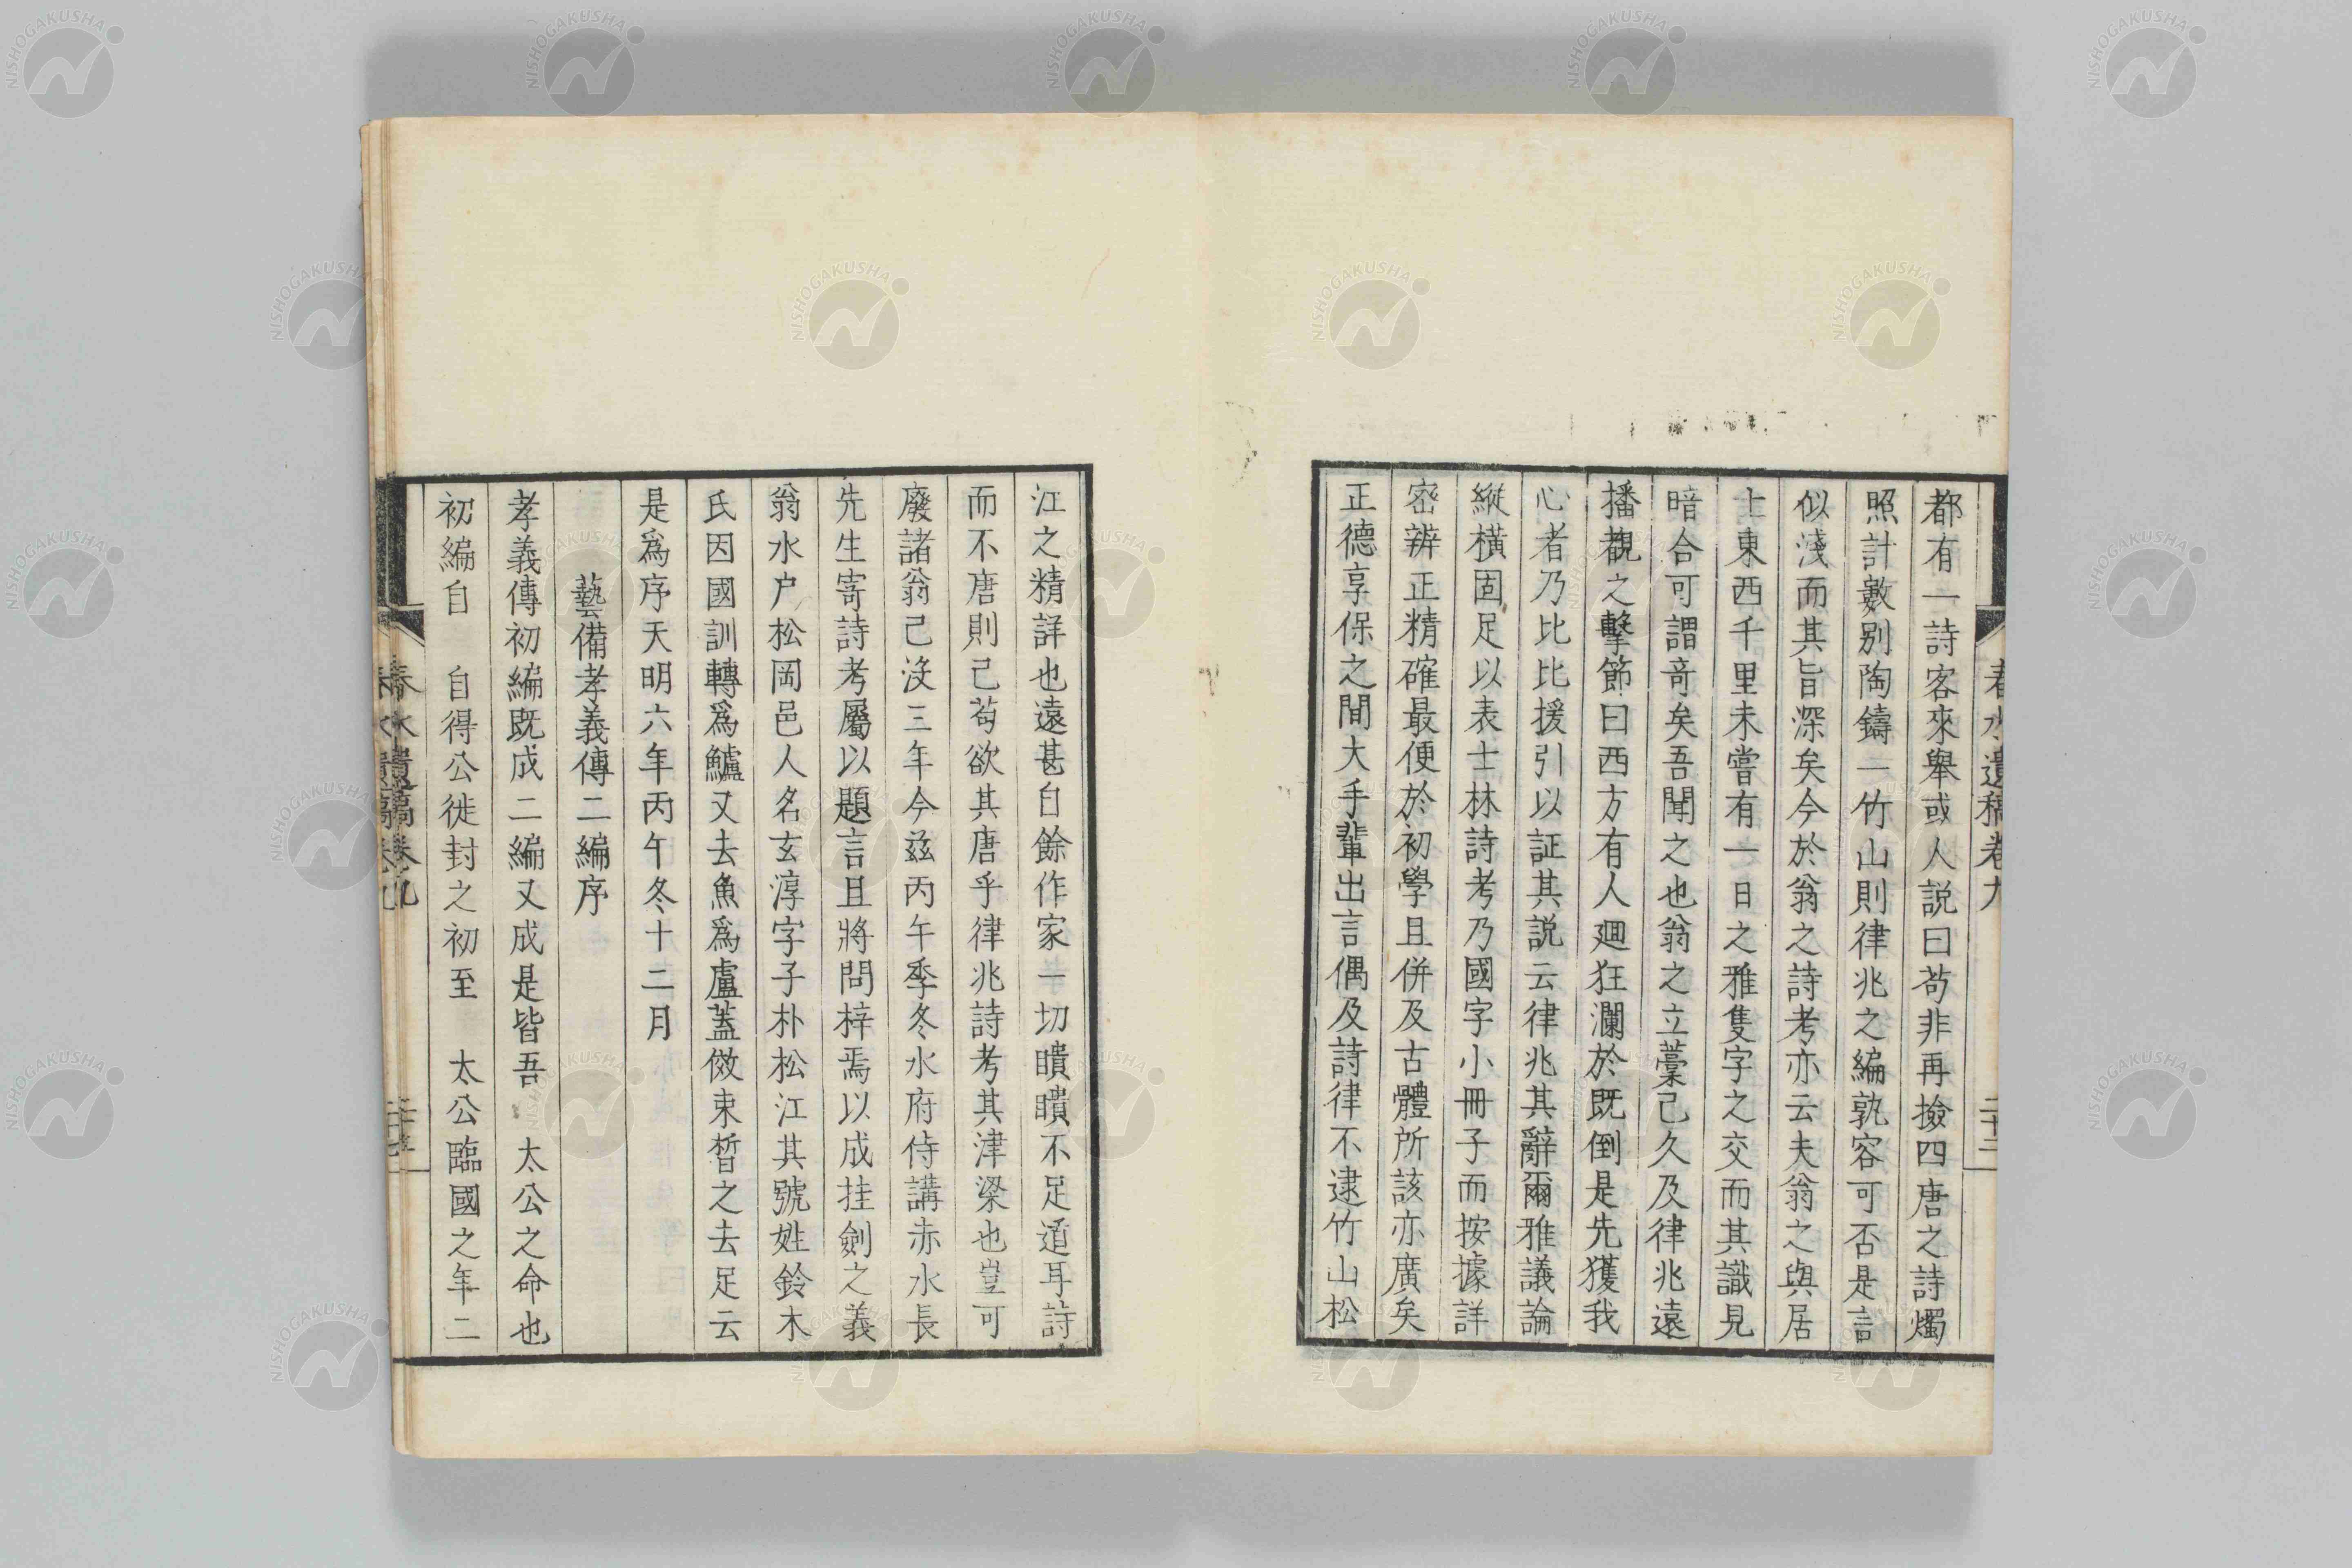 都有一詩客來舉或人説曰苟非再撿四唐之詩燭
照計數別陶鑄一竹山則律兆之編孰容可否是言
似淺而其旨深矣今於翁之詩考亦云夫翁之與居
士東西千里未嘗有一日之雅隻字之交而其識見
暗合可謂竒矣吾聞之也翁之立藁己久及律兆遠
播覩之擊節曰西方有人廻狂瀾於既倒是先獲我
心者乃比比援引以証其説云律兆其辭爾雅議論
縱橫固足以表士林詩考乃國字小冊子而按據詳
密辨正精確最便於初學且併及古體所該亦廣矣
正德享保之間大手輩出言偶及詩律不逮竹山松
春水遺稿卷九
江之精詳也遠甚自餘作家一切瞶瞶不足道耳詩
而不唐則己苟欲其唐乎律兆詩考其津梁也豈可
廢諸翁己沒三年今茲丙午季冬水府侍講赤水長
先生寄詩考屬以題言且將問梓焉以成挂劍之義
翁水户松岡邑人名玄淳字子朴松江其號姓鈴木
氏因國訓轉爲鱸又去魚爲盧蓋傚束晳之去足云
是爲序天明六年丙午冬十二月
藝備孝義傳二編序
孝義傳初編既成二編又成是皆吾　太公之命也
初編自　自得公徙封之初至　太公臨國之年二
春水遺稿卷九
NISHOGAKUSHA